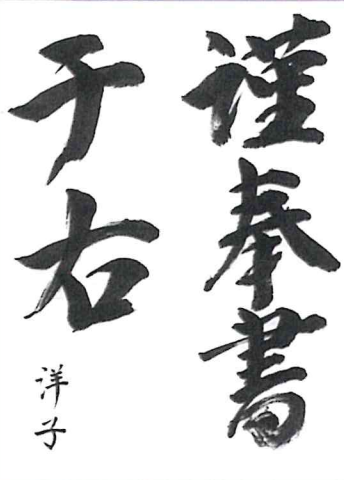 謹奉書
于右
洋子